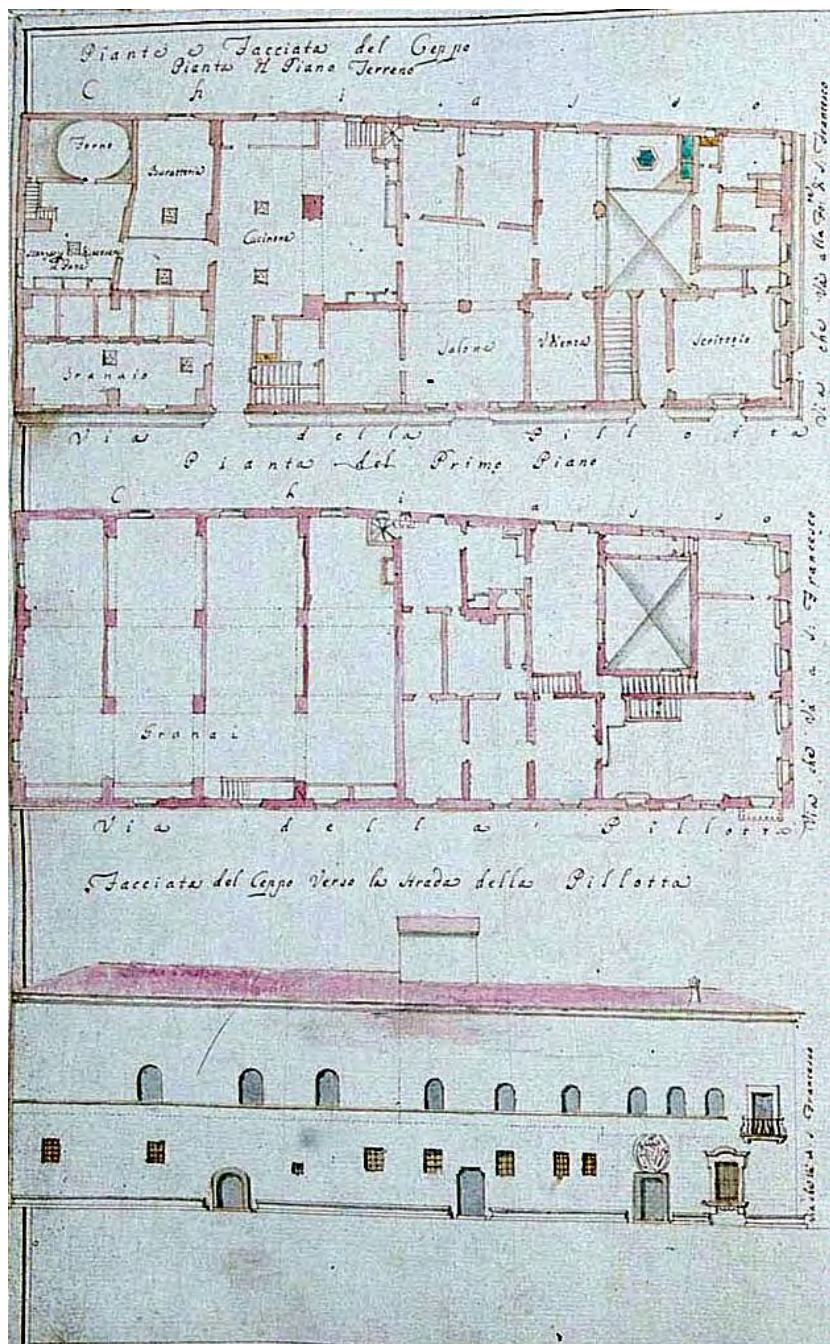 Pianta e Facciata del Ceppo
Pianta del Piano Terreno
C h i a s s o
Forno
Buratteria
Cucinona
Stanza
Granaio
Salone
Udienza
Scrittoio
Via che Và alla di S. Francesco
Via della Pillotta
Pianta del Primo Piano
C h i a s s o
Granai
Via che Và a S. Francesco
Via della Pillotta
Facciata del Ceppo Verso la strada della Pillotta
di S. Francesco